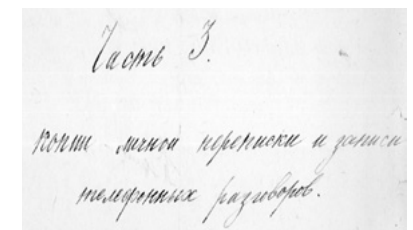 Часть 3.
копии личной переписки и записи
телефонных разговоров.